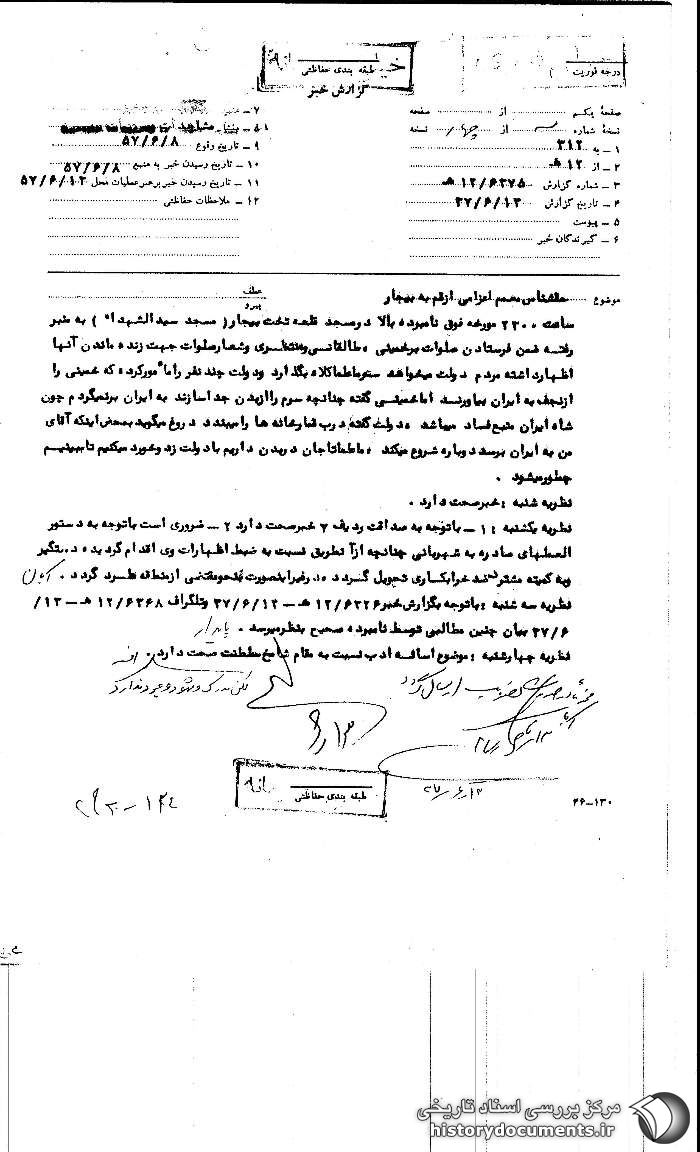 درجه فوریت
طبقه بندی حفاظتی
گزارش خبر
صفحهٔ یکم از صفحه
نسخهٔ شماره سه از چهار نسخه
۱ – به ۳۱۲
۲ – از ۱۲ هـ
۳ – شماره گزارش ۱۲/۶۳۷۵ هـ
۴ – تاریخ گزارش ۳۷/۶/۱۳
۵ – پیوست
۶ – گیرندگان خبر
۷ –
۸ – منشاء مشاهدات
۹ – تاریخ وقوع ۵۷/۶/۸
۱۰ – تاریخ رسیدن خبر به منبع ۵۷/۶/۸
۱۱ – تاریخ رسیدن خبر برهبر عملیات محل ۵۷/۶/۱۳
۱۲ – ملاحظات حفاظتی
موضوع حقشناس معمم اعزامی ازقم به بیجار
عطف
پیرو
ساعت ۲۳۰۰ مورخه فوق نامبرده بالا درمسجد قلعه تخت بیجار ( مسجد سیدالشهدا ) به منبر
رفته ضمن فرستادن صلوات برخمینی ، طالقانی ومنتظری وشعارصلوات جهت زنده ماندن آنها
اظهارداشته مردم دولت میخواهد سر ماکلاه بگذارد ودولت چند نفر را مأمورکرده که خمینی را
ازنجف به ایران بیاورند اماخمینی گفته چنانچه سرم راازبدن جداسازند به ایران برنمیگردم چون
شاه ایران منبع فساد میباشد ، دولت گفته درب قمارخانه ها رامیبندد دروغ میگوید بمحض اینکه آقای
من به ایران برسد دوباره شروع میکند ، ماتاجان دربدن داریم بادولت زد وخورد میکنیم تاببینیم
چطورمیشود .
نظریه شنبه : خبرصحت دارد .
نظریه یکشنبه : ۱ – باتوجه به صداقت ردیف ۷ خبرصحت دارد ۲ – ضروری است باتوجه به دستور
العملهای صادره به شهربانی چنانچه ازآن طریق نسبت به ضبط اظهارات وی اقدام گردیده دستگیر
وبه کمیته مشترک ضد خرابکاری تحویل گردد ، درغیراینصورت بنحومقتضی ازمنطقه طرد گردد .
نظریه سه شنبه : باتوجه بگزارش خبر ۱۲/۶۳۲۶ هـ – ۳۷/۶/۱۲ وتلگراف ۱۲/۶۳۶۸ هـ – ۱۳/
۳۷/۶ بیان چنین مطالبی توسط نامبرده صحیح بنظرمیرسد . پایدار
نظریه چهارشنبه : موضوع اسائه ادب نسبت به مقام شامخ سلطنت صحت دارد .
لکن مدرک و شهود وجود ندارد
طبقه بندی حفاظتی
۲۶–۱۳۰
مرکز بررسی اسناد تاریخی
historydocuments.ir